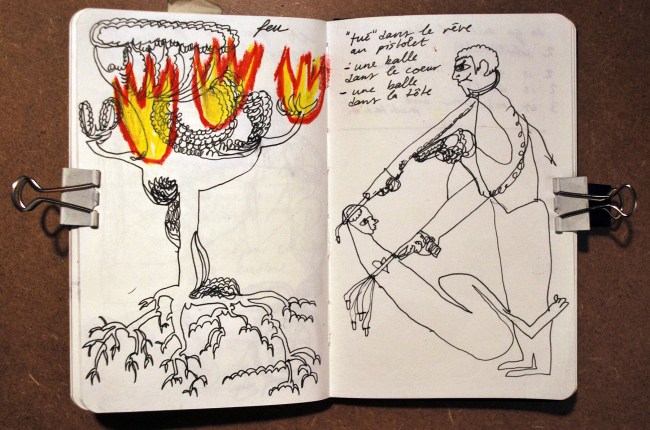 feu
"tué" dans le rêve
au pistolet
- une balle
dans le coeur
- une balle
dans la tête